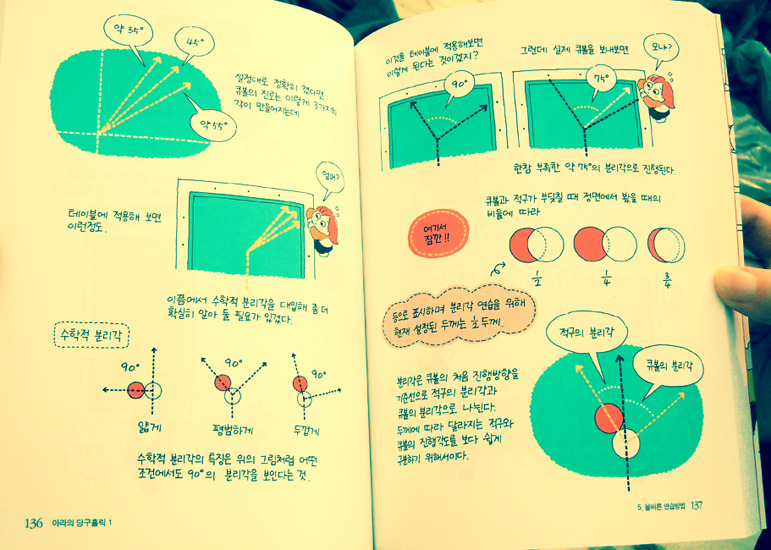 약 35°
45°
약 55°
설정대로 정확히 쳤다면
큐볼의 진로는 이렇게 3가지의
각이 만들어지는데
테이블에 적용해 보면
이런정도.
엄마?
이쯤에서 수학적 분리각을 대입해 좀 더
확실히 알아 둘 필요가 있겠다.
수학적 분리각
90°
90°
90°
얇게
평범하게
두껍게
수학적 분리각의 특징은 위의 그림처럼 어떤
조건에서도 90°의 분리각을 보인다는 것.
136 아라의 당구홀릭 1
이것을 테이블에 적용해보면
이렇게 된다는 것이겠지?
90°
그런데 실제 큐볼을 보내보면
75°
모냐?
한참 부족한 약 75°의 분리각으로 진행된다.
여기서
잠깐!!
큐볼과 적구가 부딪칠 때 정면에서 봤을 때의
비율에 따라
1/2
1/4
3/4
등으로 표시하며 분리각 연습을 위해
현재 설정된 두께는 1/2 두께.
분리각은 큐볼의 처음 진행방향을
기준선으로 적구의 분리각과
큐볼의 분리각으로 나뉜다.
두께에 따라 달라지는 적구와
큐볼의 진행각도를 보다 쉽게
구분하기 위해서이다.
적구의 분리각
큐볼의 분리각
5. 올바른 연습방법 137